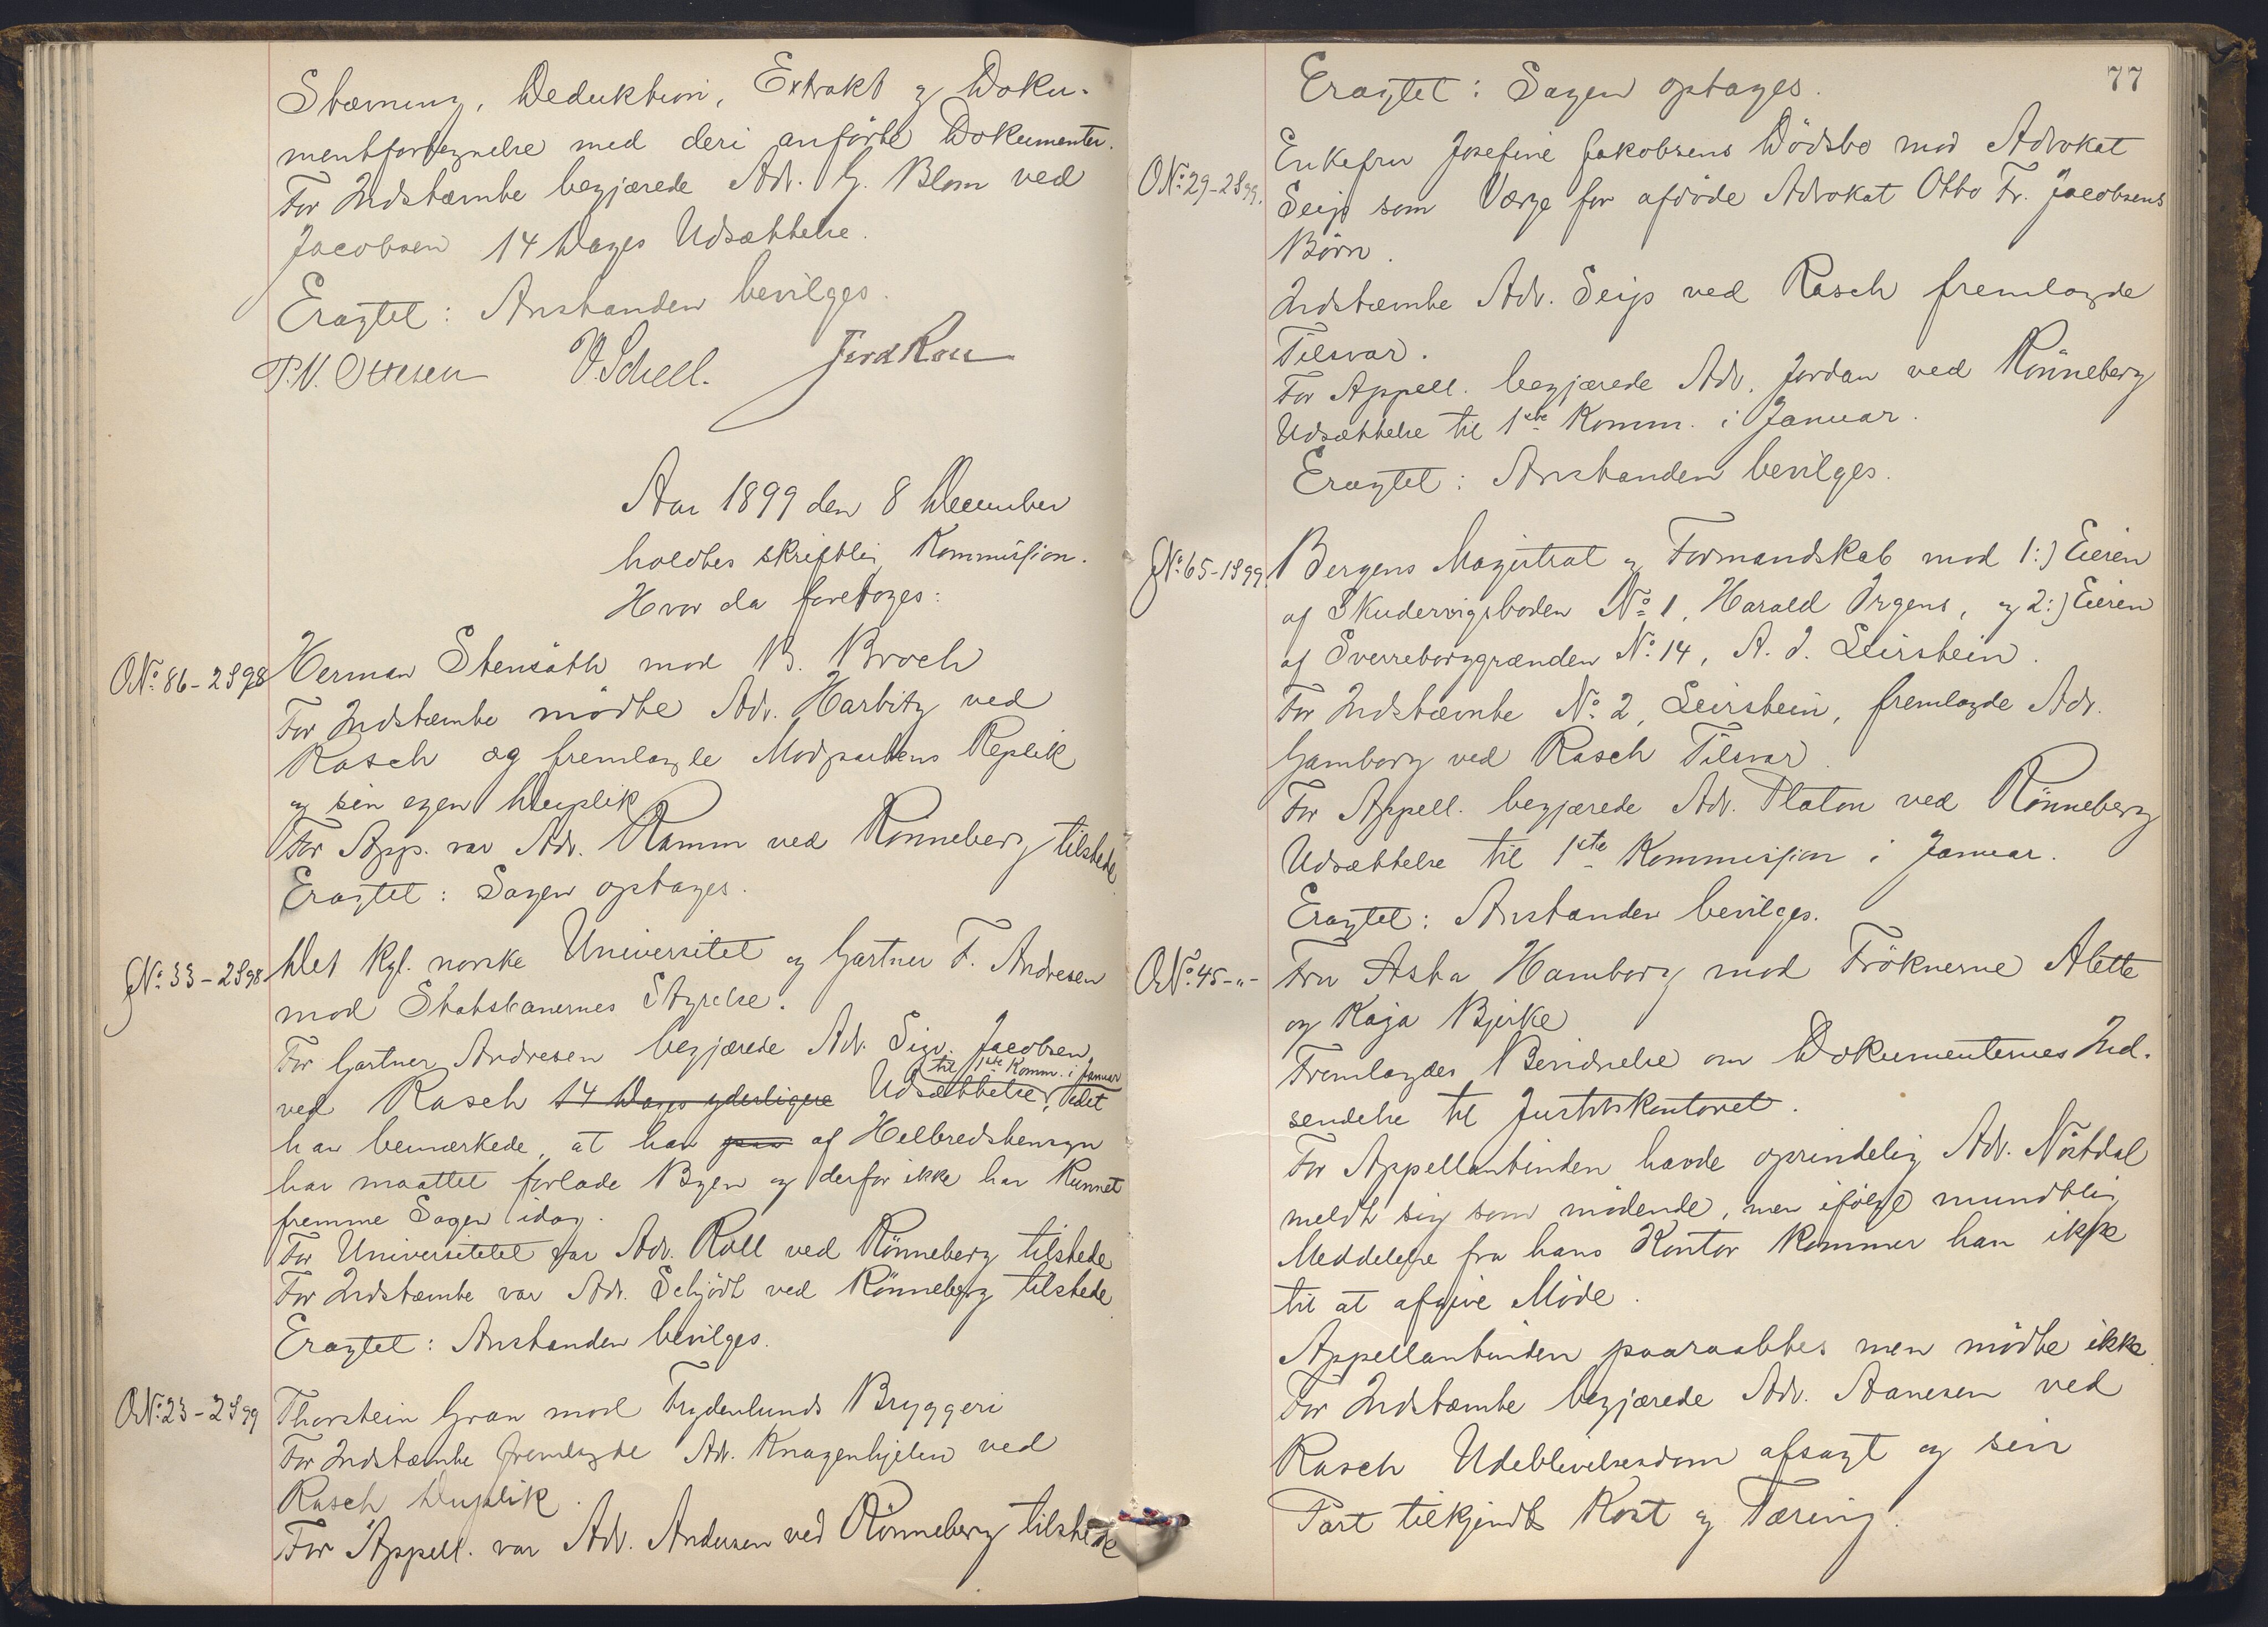 Stævning, Deduktion, Extrakt og Doku-
mentfortegnelse med deri anførte Dokumenter.
For Indstævnte begjærede Adv. G. Blom ved
Jacobsen 14 Dages Udsættelse.
Eragtet: Anstanden bevilges.
P.V. Ottesen V. Schell.
Aar 1899 den 8 December
holdtes skriftlig Kommission.
Hvor da foretoges:
O No. 86 - 2 S 98
Herman Stensäth mod B. Broch
For Indstævnte mødte Adv. Harbitz ved
Rasch og fremlagde Modpartens Replik
og sin egen Duplik
For App. var Adv. Ramm ved Rönneberg tilstede
Eragtet: Sagen optages.
G No. 33 - 2 S 98
Det Kgl. norske Universitet og Gartner F. Andresen
mod Statsbanernes Styrelse.
For Gartner Andresen begjærede Adv. Sigv. Jacobsen
til 1ste Komm. i Januar
ved Rasch 14 Dages yderligere Udsættelse, idet
han bemærkede, at han af Helbredshensyn
har maattet forlade Byen og derfor ikke har kunnet
fremme Sagen idag.
For Universitetet var Adv. Roll ved Rönneberg tilstede
For Indstævnte var Adv. Schjödt ved Rönneberg tilstede
Eragtet: Anstanden bevilges.
O No. 23 - 2 S 99
Thorstein Gran mod Frydenlunds Bryggeri
For Indstævnte fremlagde Adv. Knagenhjelm ved
Rasch Duplik.
For Appell. var Adv. Andersen ved Rönneberg tilstede
77
Eragtet: Sagen optages.
O No. 29 - 2 S 99.
Enkefru Josefine Jakobsens Dödsbo mod Advokat
Seip som Værge for afdöde Advokat Otto Fr. Jacobsens
Börn.
Indstævnte Adv. Seip ved Rasch fremlagde
Tilsvar.
For Appell. begjærede Adv. Jordan ved Rönneberg
Udsættelse til 1ste Komm. i Januar.
Eragtet: Anstanden bevilges.
G No. 65 - 1 S 99.
Bergens Magistrat og Formandskab mod 1:) Eieren
af Skudervigsboden No. 1, Harald Irgens, og 2:) Eieren
af Sverreborggrænden No. 14, A. J. Leirstein.
For Indstævnte No. 2, Leirstein, fremlagde Adv.
Gamborg ved Rasch Tilsvar.
For Appell. begjærede Adv. Platou ved Rönneberg
Udsættelse til 1ste Kommission i Januar.
Eragtet: Anstanden bevilges.
O No. 45 - " -
Fru Asta Hamborg mod Frøknerne Alette
og Kaja Bjerke
Fremlagdes Bevidnelse om Dokumenternes Ind-
sendelse til Justitskontoret.
For Appellantinden havde oprindelig Adv. Nöstdal
meldt sig som mödende, men ifölge mundtlig
Meddelelse fra hans Kontor kommer han ikke
til at afgive Möde.
Appellantinden paaraabtes men mödte ikke.
For Indstævnte begjærede Adv. Aanesen ved
Rasch Udeblivelsesdom afsagt og sin
Part tilkjendt Kost og Tæring.